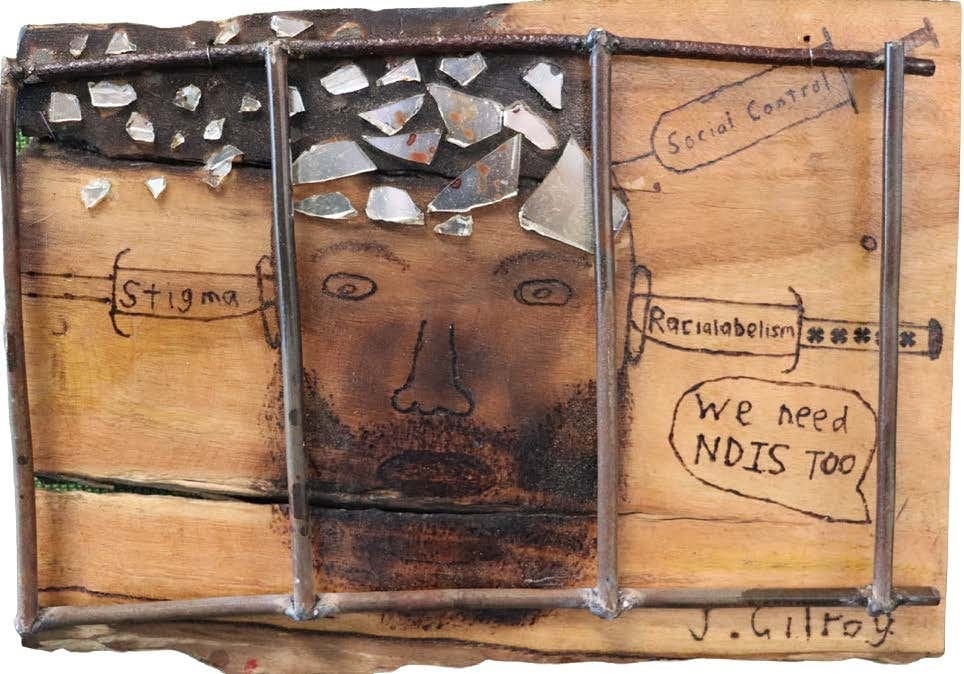 Social Control
Stigma
Racialabelism
We need
NDIS TOO
J. Gilroy